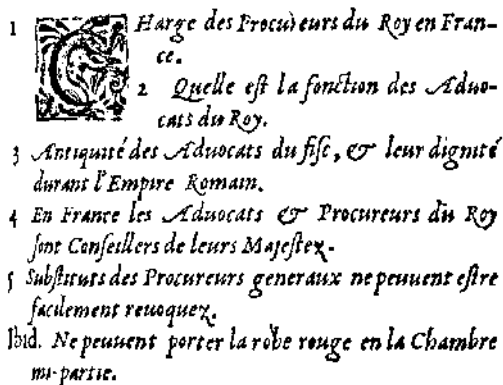 1 CHarge des Procureurs du Roy en Fran-
ce.
2 Quelle eſt la fonction des Aduo-
cats du Roy.
3 Antiquité des Aduocats du fiſc, & leur dignité
durant l'Empire Romain.
4 En France les Aduocats & Procureurs du Roy
ſont Conſeillers de leurs Majeſtez.
5 Subſtituts des Procureurs generaux ne peuuent eſtre
facilement reuoquez.
Ibid. Ne peuuent porter la robe rouge en la Chambre
mi-partie.